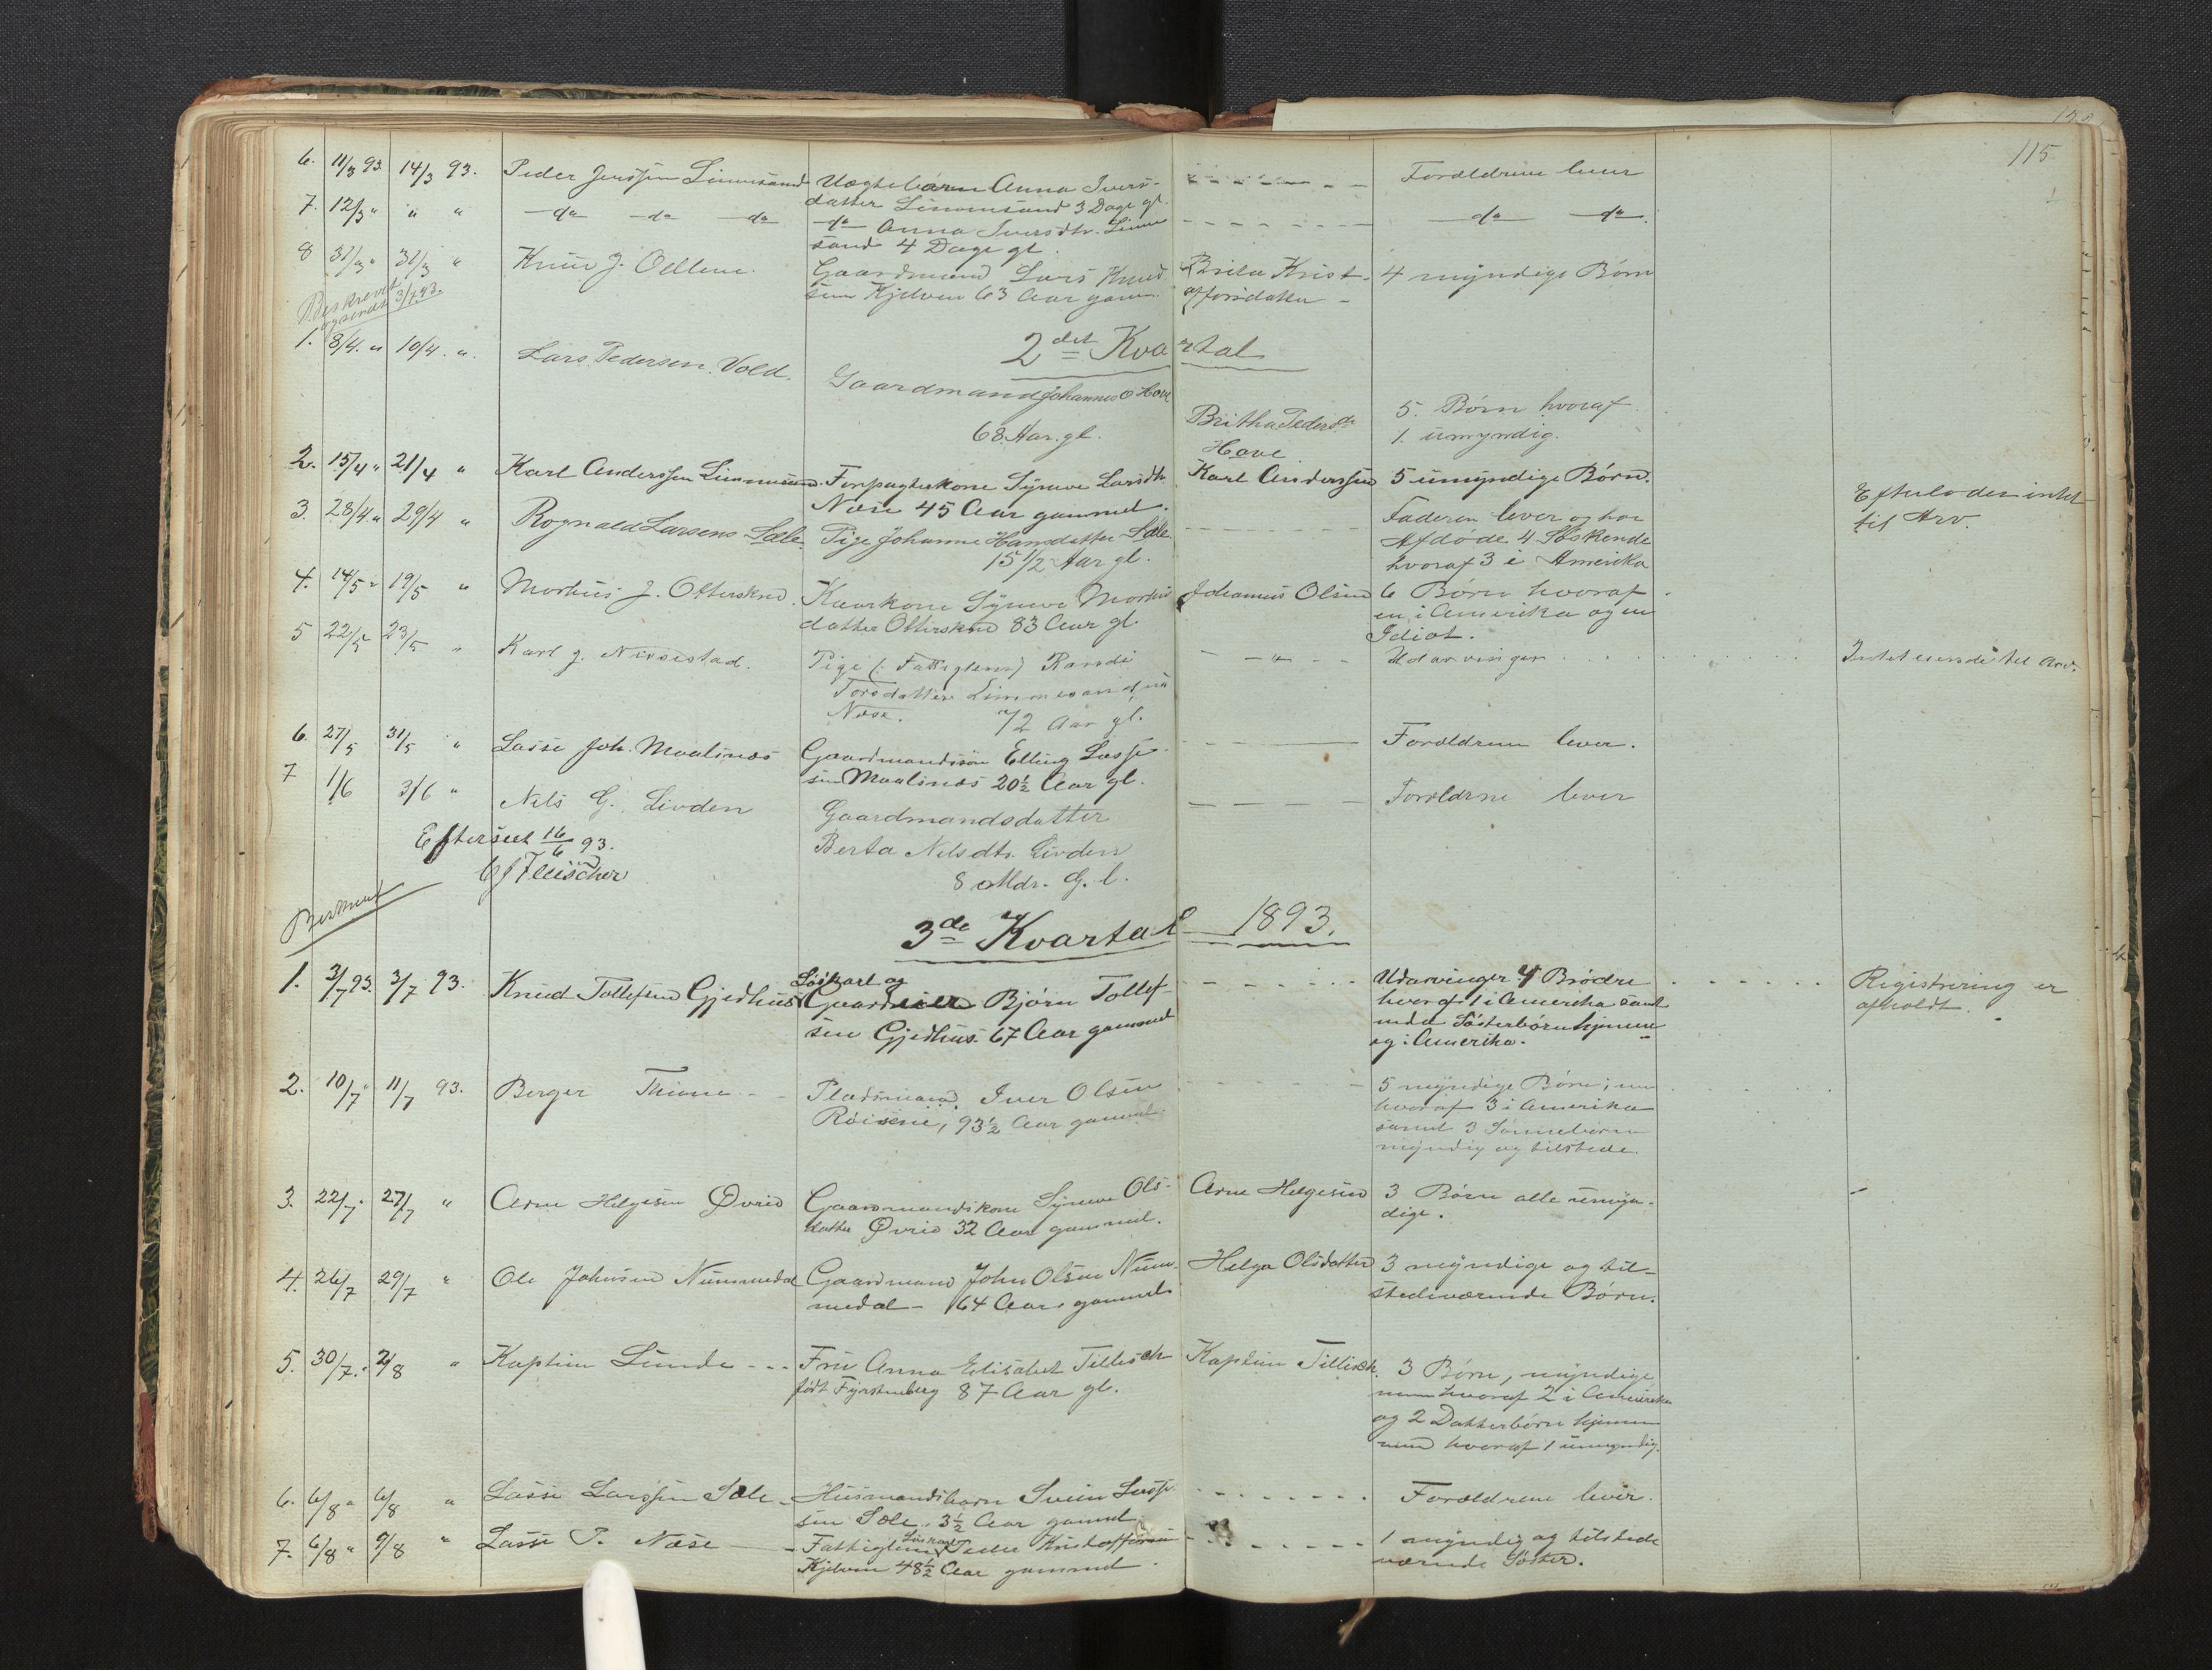 115
6. 11/3 93 14/3 93. Peder Jenssen Linnesand Uægtebarn Anna Ivers- Forældrene lever
datter Linnesand 3 Dage gl.
7. 12/3 " " " do do do do Anna Iversdtr. Linne do do
sand 4 Dage gl.
8 31/3 " 31/3 " Knut J. Gaardmand Lars Knud Brita Krist- 4 myndige Børn
sen Kjelven 63 Aar gam. offersdatter
Beskrevet
og sendt 3/4 93.
2det Kvartal
1. 8/4. " 10/4. ". Lars Pedersen Vold.
Gaardmand Johannes O Hove
68 Aar. gl. Britha Pedersdr 5. Børn hvoraf
Hove 1. umyndig.
2. 15/4 " 21/4 " Karl Anderssen Linnesand. Forpagterkone Synneve Larsdtr. Karl Anderssen 5 umyndige Børn.
Nese 45 Aar gammel.
3. 28/4. " 29/4 " Rognald Larsens Sæle. Pige Johanne Hansdatter Sæle Faderen lever og har Efterlader intet
15 1/2 Aar gl. Afdøde 4 Søskende til Arv.
hvoraf 3 i Amerika
4. 14/5 " 19/5 " Morkus J. Otterskred. Kaarkone Synneve Morkus Johannes Olsen 6 Børn hvoraf
datter Otterskred 83 Aar gl. en i Amerika og en
Idiot.
5 22/5 23/5 " Karl J. Nissestad. Pige (: Fattiglem) Randi " Udarvinger Intet eiende til Arv.
Torsdatter Linnesand
Nese. 72 Aar gl.
6. 27/5 31/5 " Lasse Joh. Maalsnes Gaardmandssøn Elling Lasse- Forældrene lever.
sen Maalsnes 20½ Aar gl.
7 1/6 3/6 " Nils G. Livden Gaardmandsdatter Forældrne lever
Berta Nilsdtr. Livden
8 Mdr. G. l.
Efterseet 16/6 93.
Fleischer
Beskrevet
3de Kvartal 1893.
1. 3/7 93. 3/7 93. Knud Tollefsen Gjedhus Løskarl og
Gaardeier Bjørn Tollef- Udarvinger 4 Brødre Registrering er
sen Gjedhus 67 Aar gammel hvoraf 1 i Amerika samt afholdt.
Søsterbørn hjemme
og i Amerika.
2. 10/7 " 11/7 93. Berger Thinne Pladsmand Iver Olsen 5 myndige Børn;
93½ Aar gammel. hvoraf 3 i Amerika
samt 3 Sønnebørn
myndig og tilstede.
3. 22/7. 27/7 " Arne Helgesen Øvrid Gaardmandskone Synneve Ols- Arne Helgesen 3 Børn alle umyn-
datter Øvrid 32 Aar gammel. dige.
4. 26/7 29/7 " Ole Johnsen Nummedal Gaardmand John Olsen Num- Helga Olsdatter 3 myndige og til-
medal - 64 Aar gammel stedeværende Børn.
5. 30/7. " 2/8 " Kaptein Lunde - - - Fru Anna Elisabet Tillisch Kaptein Tillisch. 3 Børn, myndige
født Fyrstenberg 87 Aar gl. hvoraf 2 i Amerika
og 2 Datterbørn hjemme
hvoraf 1 umyndig.
6. 6/8 " 6/8 " Lasse Larssen Sæle Husmandsbarn Svein Lasse- Forældrene lever.
sen Sæle. 3½ Aar gammel.
7. 6/8 " 9/8 " Lasse P. Nese Løskarl
Fattiglem Peder Kristoffersen 1 myndig og tilstede
Kjelven 48½ Aar gammel. værende Søster.